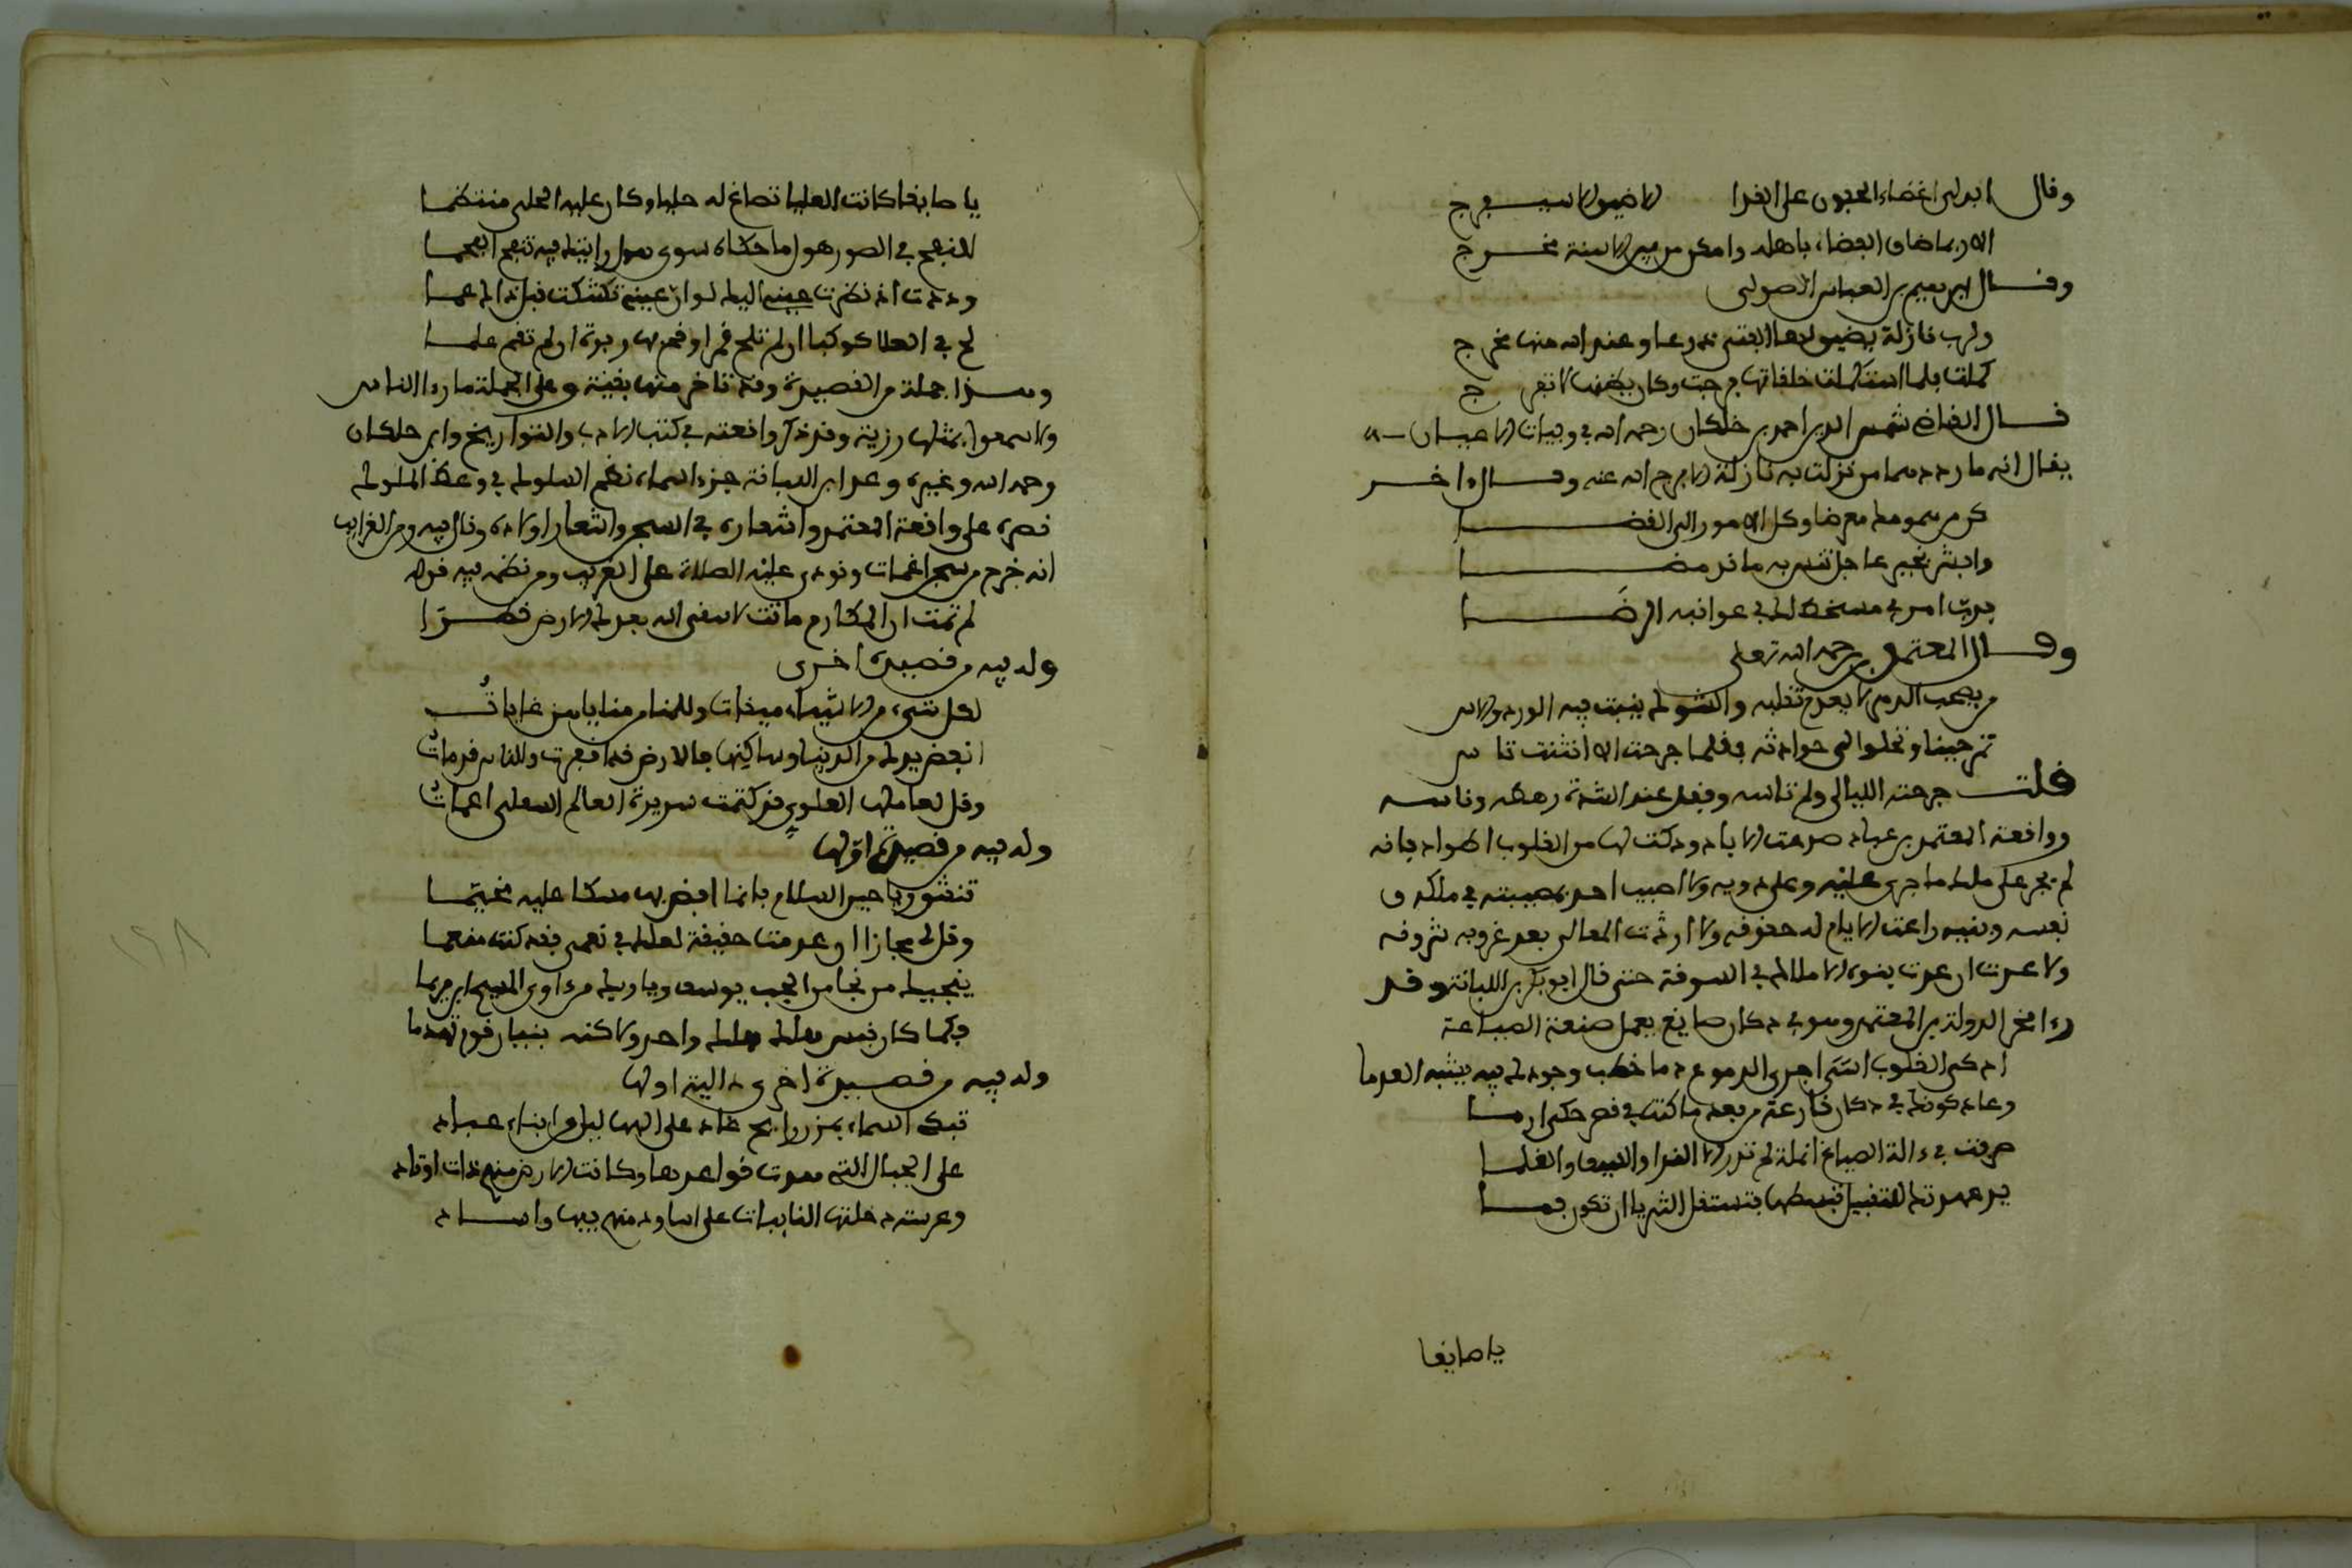 وقال ابولى اغضاء الجفون على القذا لاضيق الا سيفرج
الا ربما ضاق الفضاء باهله وامكن من بين الاسنة مخرج
وقال ابرهيم بن العباس الصولى
ولرب نازلة يضيق لها الفتى ذرعا وعند الله منها مخرج
كملت فلما استكملت حلقاتها فرجت وكان يظنها لا تفرج
قال القاضى شمس الدين احمد بن خلكان رحمه الله في وفيات الاعيان
يقال انه ما رددهما من نزلت به نازلة الا فرج الله عنه وقال ءاخر
كن عن همومك معرضا وكل الامور الى القضا
وابشر بخير عاجل تنس به ما قد مضا
فرب امر مسخط لك في عواقبه الرضا
وقال المعتمد رحمه الله تعلى
من يصحب الدهر لا يعدم تقلبه والشوك ينبت فيه الورد والاس
تمر حينا وتحلوا لى حوادثه فقلما جرحت الا انثنت تاسو
قلت جرحته الليالى ولم تاسه وفقد عند الشدة رهطه وناسه
وواقعة المعتمد بن عباد صدعت الاباد ودكت لها من القلوب اطواد فانه
لم يجر على ملك ما جرى عليه وعلى ذويه ولا اصيب احد بمصيبته في ملكه و
نفسه وبنيه راعت الايام له حقوقه ولا ارثت المعالى بعد غروبه شروقه
ولا عرت ان عرت بنوه الاملاك في السوقة حتى قال ابو بكر بن اللبانة وقد
رءا فخر الدولة بن المعتمد وهو في دكان صايغ يعمل صنعة الصياغة
اذكى القلوب اسى اجرى الدموع دما خطب وجودك فيه يشبه العدما
وعاد كونك في دكان قارعة من بعد ما كنت في قصر حكى ارما
صرفت في ءالة الصياغ انملة لم تدر الا الندا والسيف والقلما
يد عهدتك للتقبيل تبسطها فتستقل الثريا ان تكون فما
يا صايغا
يا صايغا كانت العليا تصاغ له حليا وكان عليه الحلى منتظما
للنفخ في الصور هول ما حكاه سوى هول رايتك فيه تنفخ الفحما
وددت اذ نظرت عينى اليك لو ان عينى تشكت قبل ذاك عما
لح في العلا كوكبا ان لم تلح قمرا وقم بها ربوة ان لم تقم علما
وهذا جملة من القصيدة وقد تاخر منها بقية وعلى الجملة ما رءا الناس
ولا سمعوا بمثلها رزية وقد ذكر واقعته في كتب الادب والتواريخ وابن خلكان
رحمه الله وغيره وعد ابن اللبانة جزءا سماه نظم السلوك في وعظ الملوك
قصره على واقعة المعتمد واشعاره في السجن واشعار اولاده وقال فيه ومن الغرايب
انه خرج من سجن اغمات ونودى عليه الصلاة على الغريب ومن نظمه فيه قوله
لم تمت ان المكارم ماتت لا سقى الله بعدك الارض قطرا
وله فيه من قصيدة اخرى
لكل شىء من الاشياء ميقات وللمنا من مناياهن غايات
انفض يدك من الدنيا وساكنها فالارض قد اقفرت والناس قد ماتوا
وقل لعالمها العلوى قد كتمت سريرة العالم السفلى اغمات
وله فيه من قصيدة اولها
تنشق رياحين السلام فانما افض بها مسكا عليك مختما
وقل لى مجازا ان عدمت حقيقة لعلك في نعمى فقد كنت منعما
ينجيك من نجا من الجب يوسف وياويك من ءاوى المسيح ابن مريما
فكما كان قيس هلكه هلك واحد ولاكنه بنيان قوم تهدما
وله فيه من قصيدة اخرى دالية اولها
تبكى السماء بمزن رايح غاد على البهاليل من ابناء عباد
على الجبال التى هدت قواعدها وكانت الارض منهم ذات اوتاد
وعريسة دخلتها النايبات على اساود منهم فيها واساد